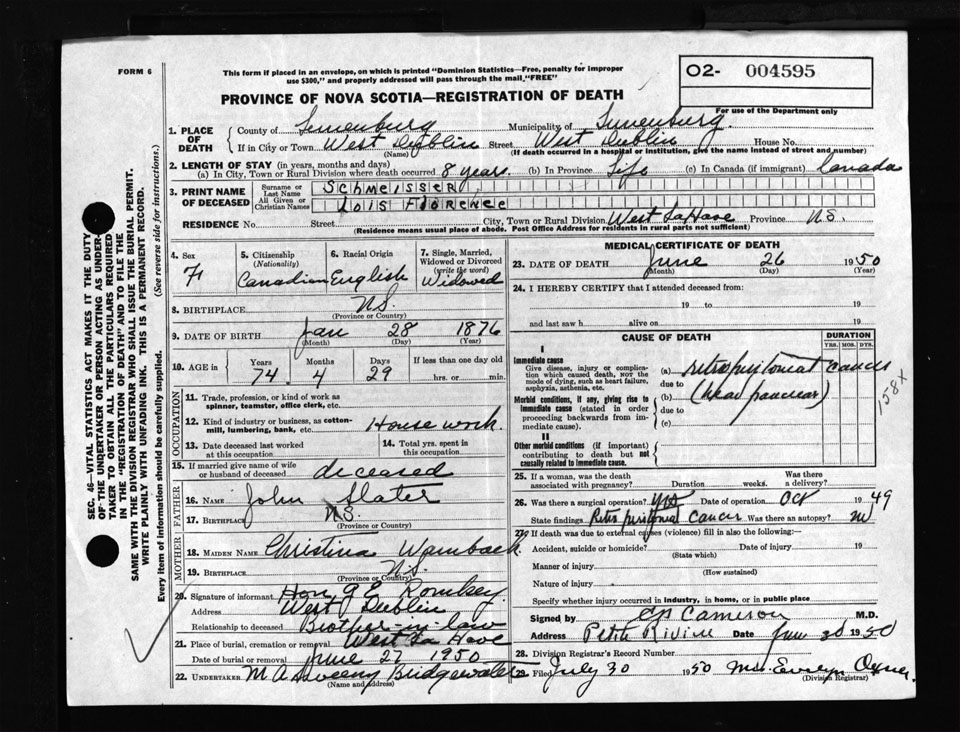 FORM 6
This form if placed in an envelope, on which is printed "Dominion Statistics—Free, penalty for improper
use $300," and properly addressed will pass through the mail "FREE"
O2- 004595
PROVINCE OF NOVA SCOTIA—REGISTRATION OF DEATH
For use of the Department only
1. PLACE OF DEATH
County of Lunenburg Municipality of Lunenburg
If in City or Town West Dublin Street West Dublin House No.
(Name) (If death occurred in a hospital or institution, give the name instead of street and number)
2. LENGTH OF STAY (in years, months and days)
(a) In City, Town or Rural Division where death occurred 8 years. (b) In Province Life (c) In Canada (if immigrant) Canada
3. PRINT NAME OF DECEASED
Surname or Last Name SCHMEISSER
All Given or Christian Names LOIS FLORENCE
RESIDENCE No. Street City, Town or Rural Division West LaHave Province N.S.
(Residence means usual place of abode. Post Office Address for residents in rural parts not sufficient)
4. Sex F
5. Citizenship (Nationality) Canadian
6. Racial Origin English
7. Single, Married, Widowed or Divorced (write the word) Widowed
8. BIRTHPLACE N.S.
(Province or Country)
9. DATE OF BIRTH Jan 28 1876
(Month) (Day) (Year)
10. AGE in Years 74 Months 4 Days 29 If less than one day old
hrs. or min.
OCCUPATION
11. Trade, profession, or kind of work as
spinner, teamster, office clerk, etc.
12. Kind of industry or business, as cotton-
mill, lumbering, bank, etc. House work.
13. Date deceased last worked
at this occupation
14. Total yrs. spent in
this occupation
15. If married give name of wife
or husband of deceased deceased
FATHER
16. NAME John Slater
17. BIRTHPLACE N.S.
(Province or Country)
MOTHER
18. MAIDEN NAME Christina Wambach
19. BIRTHPLACE N.S.
(Province or Country)
20. Signature of informant Hon G E Romkey
Address West Dublin
Relationship to deceased Brother-in-law
21. Place of burial, cremation or removal West La Have
Date of burial or removal June 27 1950
22. UNDERTAKER M A Sweeny Bridgewater
(Name and address)
MEDICAL CERTIFICATE OF DEATH
23. DATE OF DEATH June 26 1950
(Month) (Day) (Year)
24. I HEREBY CERTIFY that I attended deceased from:
19 to 19
and last saw h alive on 19
CAUSE OF DEATH
DURATION
YRS. MOS. DYS.
I
Immediate cause
Give disease, injury or complica-
tion which caused death, not the
mode of dying, such as heart failure,
asphyxia, asthenia, etc.
(a) retroperitoneal cancer
due to
Morbid conditions, if any, giving rise to
immediate cause (stated in order
proceeding backwards from im-
mediate cause).
(b) (head pancreas)
due to
(c)
158 X
II
Other morbid conditions (if important)
contributing to death but not
causally related to immediate cause.
25. If a woman, was the death
associated with pregnancy? Duration weeks. Was there
a delivery?
26. Was there a surgical operation? yes Date of operation Oct 1949
State findings Retroperitoneal cancer Was there an autopsy? no
27. If death was due to external causes (violence) fill in also the following:—
Accident, suicide or homicide? Date of injury 19
(State which)
Manner of injury
(How sustained)
Nature of injury
Specify whether injury occurred in industry, in home, or in public place
Signed by Cameron M.D.
Address Petite Riviere Date June 30 1950
28. Division Registrar's Record Number
29. Filed July 30 1950 Mrs. Evelyn
(Division Registrar)
SEC. 46—VITAL STATISTICS ACT MAKES IT THE DUTY
OF THE UNDERTAKER OR PERSON ACTING AS UNDER-
TAKER TO OBTAIN ALL THE PARTICULARS REQUIRED
IN THE "REGISTRATION OF DEATH" AND TO FILE THE
SAME WITH THE DIVISION REGISTRAR WHO SHALL ISSUE THE BURIAL PERMIT.
WRITE PLAINLY WITH UNFADING INK. THIS IS A PERMANENT RECORD.
Every item of information should be carefully supplied. (See reverse side for instructions.)